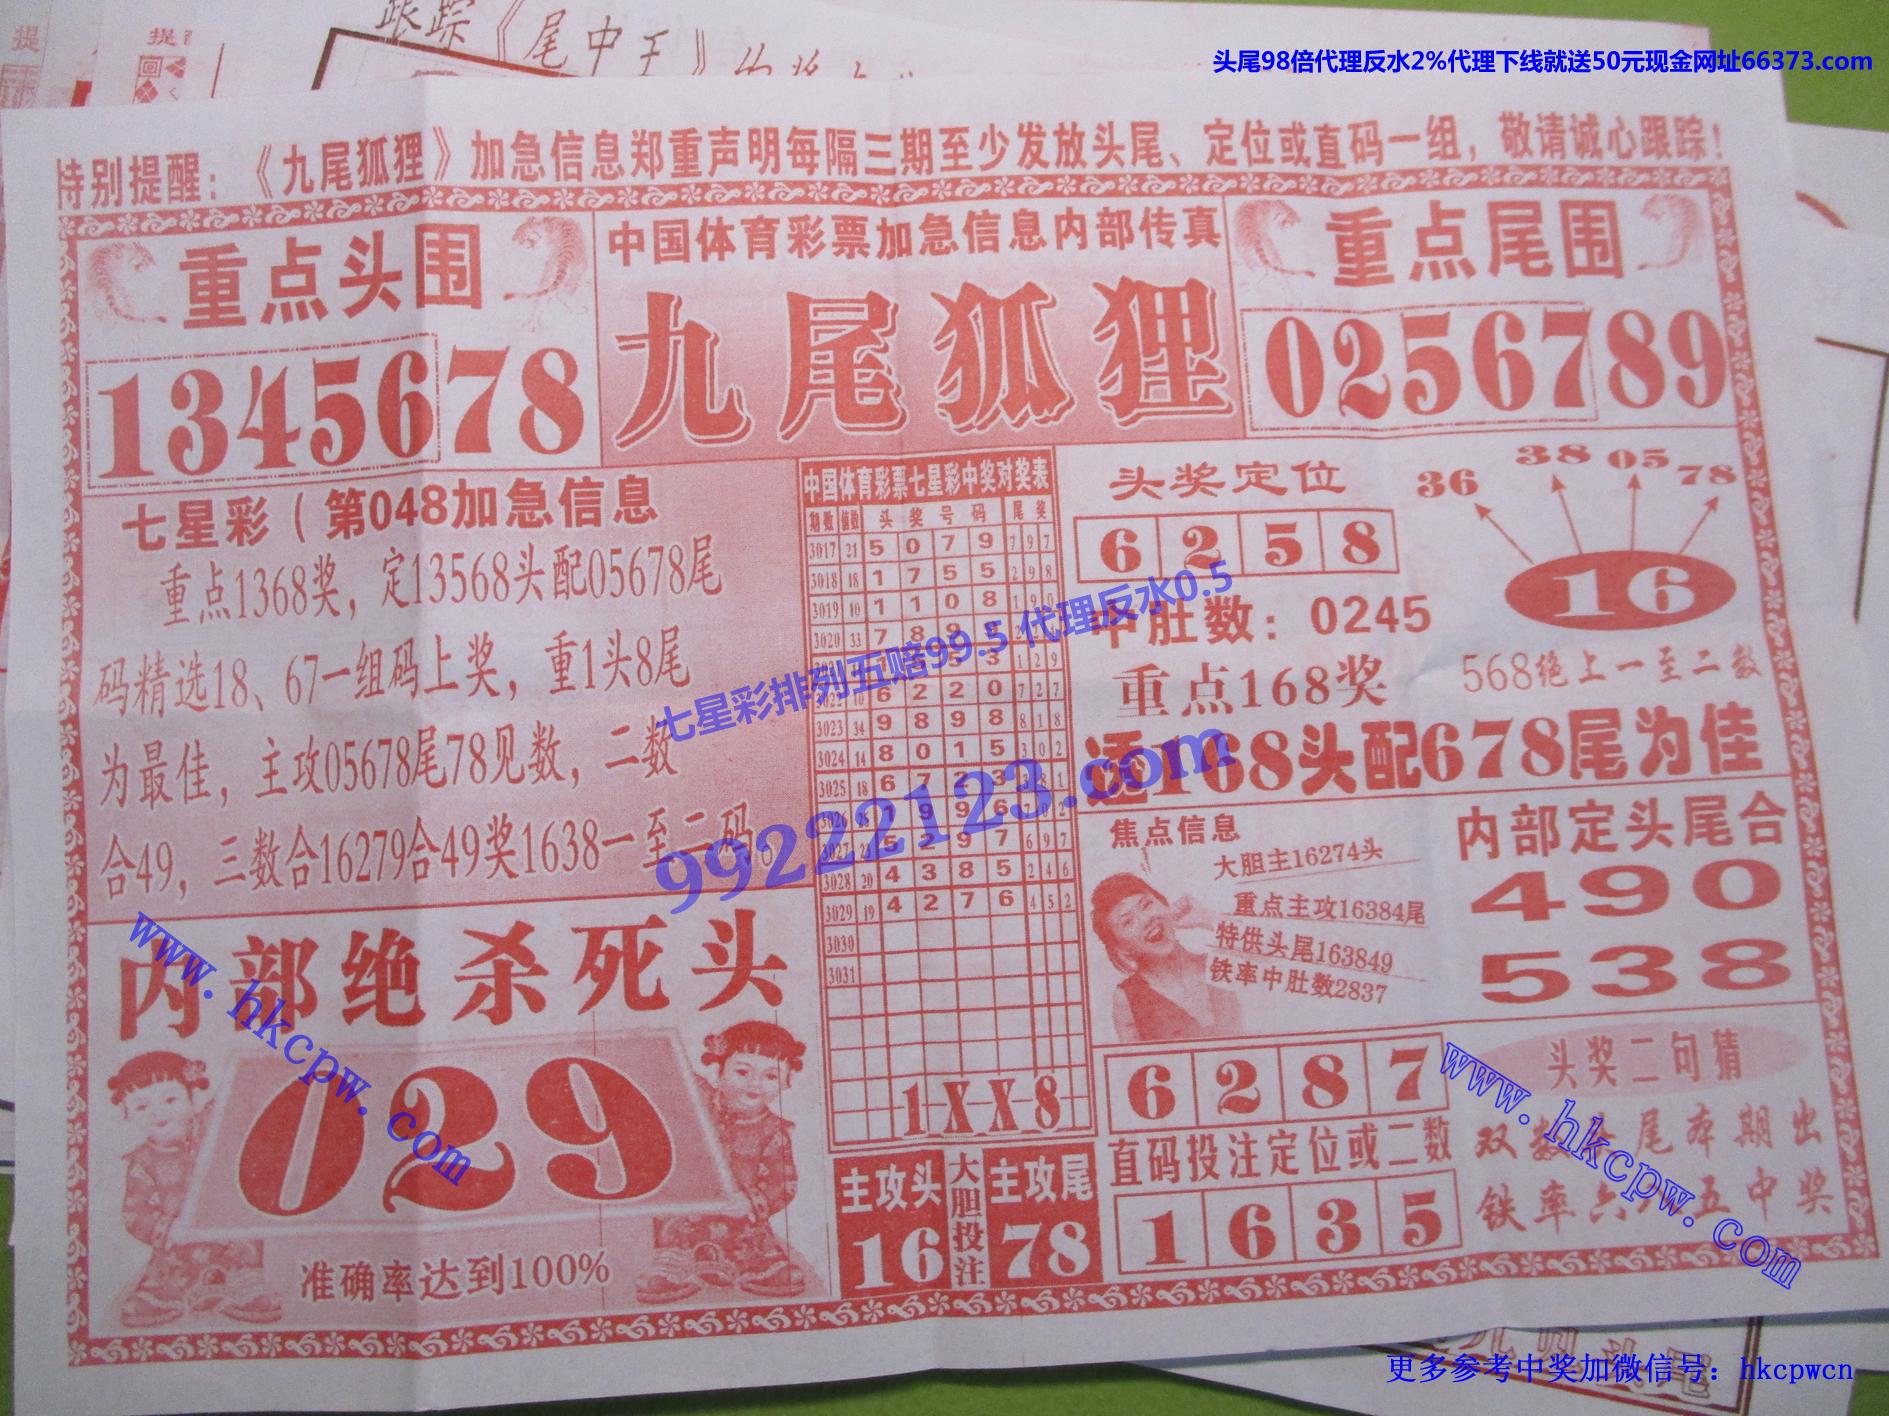 跟踪《尾中王》
头尾98倍代理反水2%代理下线就送50元现金网址66373.com
特别提醒：《九尾狐狸》加急信息郑重声明每隔三期至少发放头尾、定位或直码一组，敬请诚心跟踪！
重点头围
1345678
中国体育彩票加急信息内部传真
九尾狐狸
重点尾围
0256789
七星彩（第048加急信息
重点1368奖，定13568头配05678尾
码精选18、67一组码上奖，重1头8尾
为最佳，主攻05678尾78见数，二数
合49，三数合16279合49奖1638一至二码。
内部绝杀死头
029
准确率达到100%
中国体育彩票七星彩中奖对奖表
期数 值数 头奖号码 尾奖
3017 21 5 0 7 9 7 9 7
3018 18 1 7 5 5 2 9 8
3019 10 1 1 0 8 1 9 0
3020 33 7 8 9 9
5 3 1 2 9
3022 10 6 2 2 0 7 2 7
3023 34 9 8 9 8 8 1 8
3024 14 8 0 1 5 3 0 2
3025 18 6 7 2 3 8 1
3026 1 9 9 6 0 2
3027 5 2 9 7 6 9 7
3028 20 4 3 8 5 2 4 6
3029 19 4 2 7 6 4 5 2
3030
3031
1 X X 8
主攻头
16
大胆投注
主攻尾
78
头奖定位
6 2 5 8
36 38 05 78
16
中肚数：0245
重点168奖
568绝上一至二数
透168头配678尾为佳
焦点信息
大胆主16274头
重点主攻16384尾
特供头尾163849
铁率中肚数2837
内部定头尾合
490
538
6 2 8 7
直码投注定位或二数
1 6 3 5
头奖二句猜
双数 尾本期出
铁率六 五中奖
七星彩排列五赔99.5 代理反水0.5
99222123.com
www.hkcpw.com
www.hkcpw.com
更多参考中奖加微信号：hkcpwcn